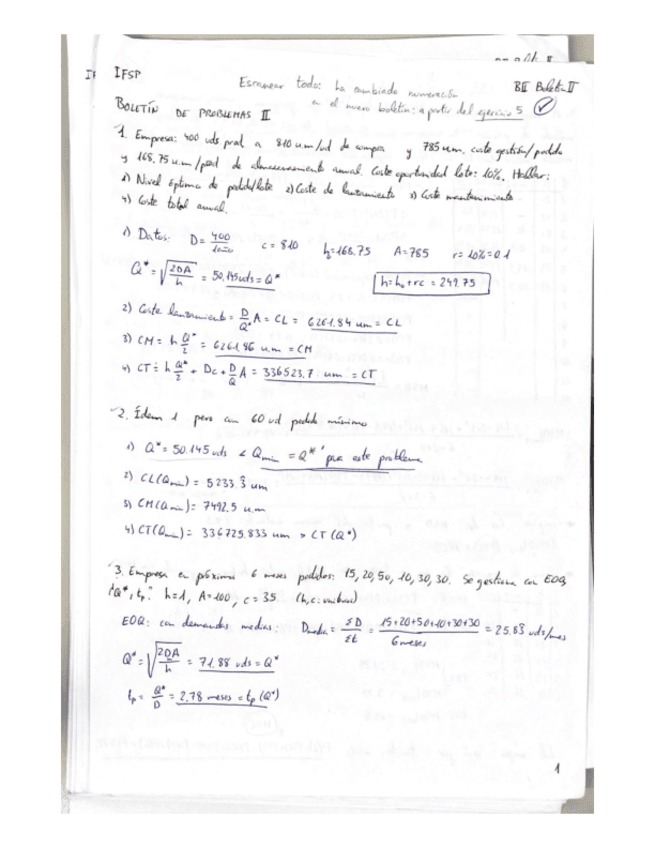 IFSP
Escanear todo: ha cambiado numeración
BII Boletín II
en el nuevo boletín: a partir del ejercicio 5
BOLETÍN DE PROBLEMAS II
1. Empresa: 400 uds prod. a 810 um/ud de compra y 785 um. coste gestión/pedido
y 168,75 um/prod de almacenamiento anual. Coste oportunidad lote: 10%. Hallar:
1) Nivel óptimo de pedido/lote 2) Coste de lanzamiento 3) Coste mantenimiento
4) Coste total anual.
1) Datos: D = 400/1año c = 810 h₀=168.75 A=785 r=10%=0.1
Q* = √(2DA/h) = 50.145 uds = Q*
h = h₀ + rc = 249.75
2) Coste lanzamiento = D/Q* A = CL = 6261.84 um = CL
3) CM = h Q*/2 = 6261,86 u.m = CM
4) CT = h Q*/2 + Dc + D/Q A = 336523,7 um = CT
2. Ídem 1 pero con 60 ud pedido mínimo
1) Q* = 50.145 uds < Qmin = Q*' para este problema
2) CL(Qmin) = 5233.3̂ um
3) CM(Qmin) = 7492,5 u.m
4) CT(Qmin) = 336725.833 um > CT(Q*)
3. Empresa en próximos 6 meses pedidos: 15, 20, 50, 10, 30, 30. Se gestiona con EOQ
¿Q*, tp? h=1, A=100, c=35 (h, c: unitarios)
EOQ: con demandas medias: Dmedia = ΣD/Σt = 15+20+50+10+30+30/6 meses = 25.83̂ uds/mes
Q* = √(2DA/h) = 71.88 uds = Q*
tp = Q*/D = 2,78 meses = tp(Q*)
1